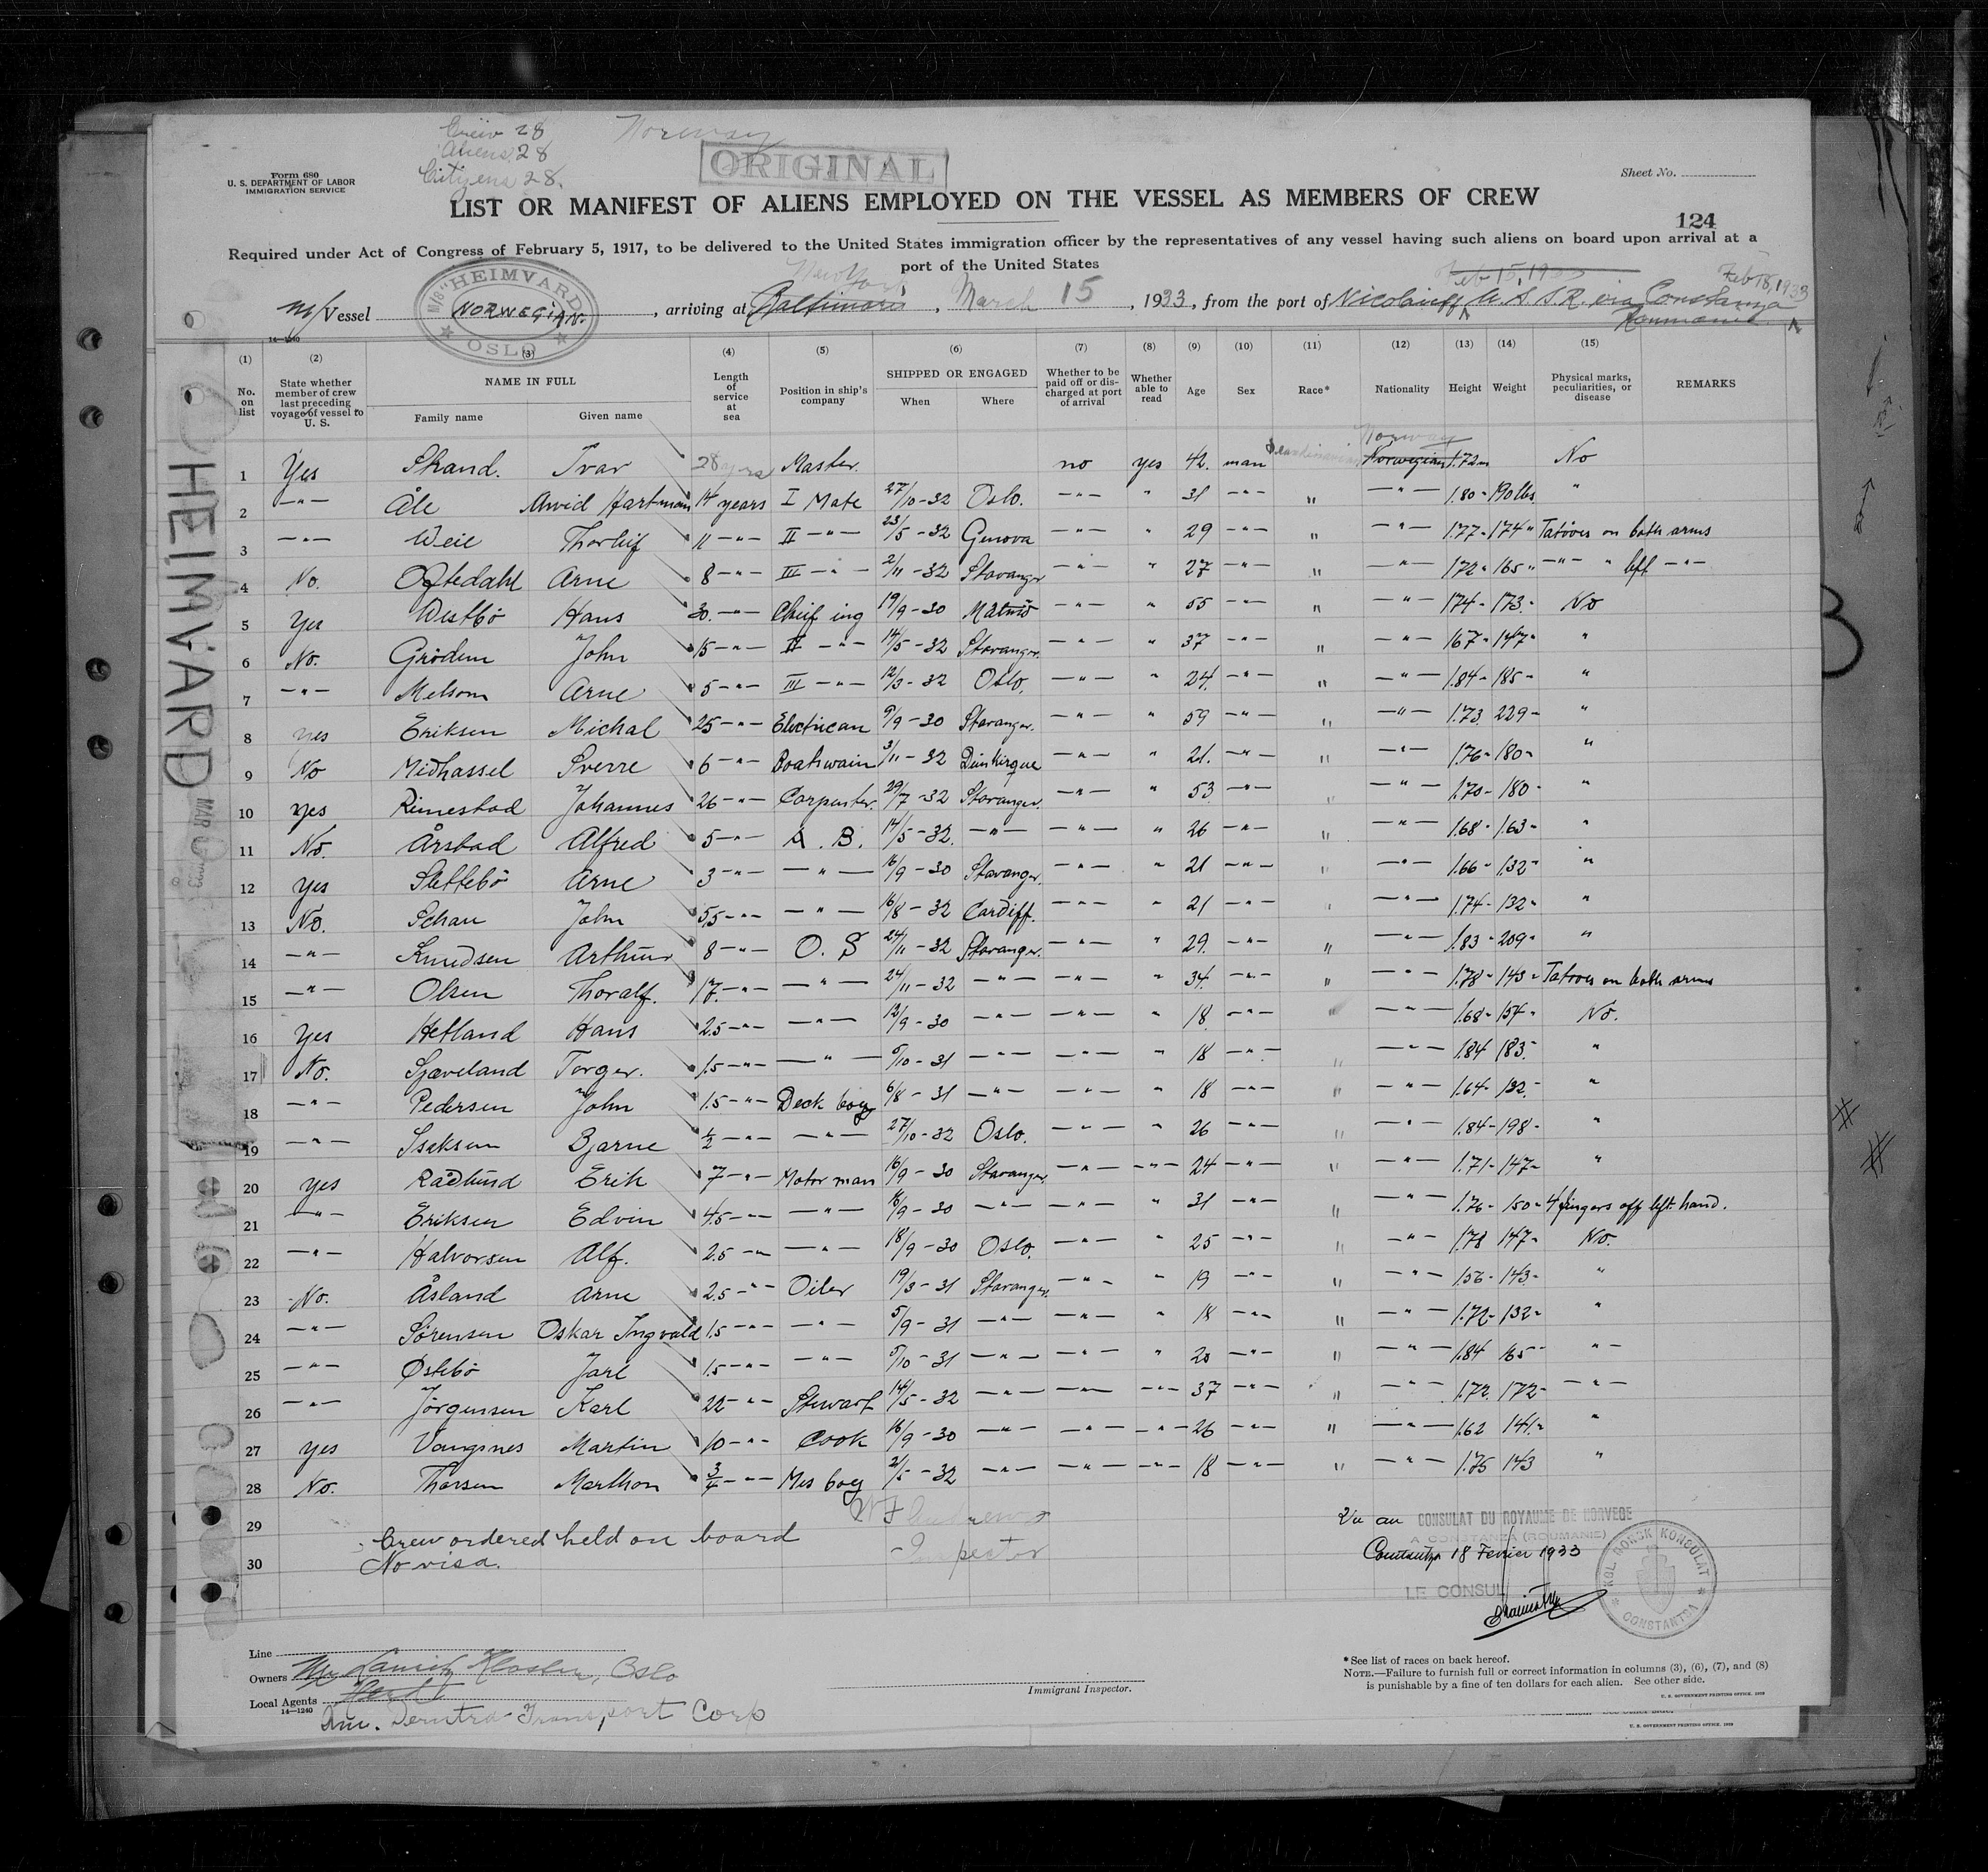 Crew 28
Aliens 28
Citizens 28.
Norway
ORIGINAL
Form 680
U. S. DEPARTMENT OF LABOR
IMMIGRATION SERVICE
Sheet No.
LIST OR MANIFEST OF ALIENS EMPLOYED ON THE VESSEL AS MEMBERS OF CREW
124
Required under Act of Congress of February 5, 1917, to be delivered to the United States immigration officer by the representatives of any vessel having such aliens on board upon arrival at a
port of the United States
New York Feb 15, 1933 Feb 18, 1933
M/S "HEIMVARD" OSLO
m/s Vessel NORWEGIAN. , arriving at Baltimore , March 15 , 1933, from the port of Nicolaieff U.S.S.R. via Constanza
Roumania
14—1240
(1) (2) (3) (4) (5) (6) (7) (8) (9) (10) (11) (12) (13) (14) (15)
No. on list
State whether member of crew last preceding voyage of vessel to U. S.
NAME IN FULL
Family name Given name
Length of service at sea
Position in ship's company
SHIPPED OR ENGAGED
When Where
Whether to be paid off or discharged at port of arrival
Whether able to read
Age Sex Race* Nationality Height Weight
Physical marks, peculiarities, or disease
REMARKS
Norway
1 Yes Skand. Ivar 28 yrs Master. no yes 42. man Scandinavian Norwegian 1.72m No
2 —"— Åle Arvid Hartman 14 years I Mate 27/10-32 Oslo. —"— " 31 —"— " —"— 1.80 - 190 lbs. "
3 —"— Weie Thorleif 11 —"— II —"— 23/5-32 Genova —"— " 29 —"— " —"— 1.77 - 174 " Tatoves on both arms
4 No. Oftedahl Arne 8 —"— III —"— 2/11-32 Stavanger —"— " 27 —"— " —"— 172 " 165 " —"— " left —"—
5 Yes Westbö Hans 30. —"— Chief ing 19/9-30 Malmö —"— " 55 —"— —"— 174 - 173. No
6 No. Grödem John 15 —"— II —"— 14/5-32 Stavanger. —"— " 37 —"— " —"— 167 - 147 - "
7 —"— Melsom Arne 5 —"— III —"— 12/3-32 Oslo. —"— " 24. —"— " —"— 1.84 - 185 - "
8 yes Eriksen Michal 25 —"— Electrican 9/9-30 Stavanger. —"— " 59 —"— " —"— 1.73. 229 - "
9 No Midhassel Sverre 6 —"— Boatswain 3/11-32 Dünkirque —"— " 21. —"— " —"— 1.76 - 180 - "
10 yes Rimestad Johannes 26 —"— Carpenter. 29/7-32 Stavanger. —"— " 53 —"— " —"— 1.70 - 180 - "
11 No. Årstad Alfred 5 —"— A. B. 14/5-32. —"— —"— " 26 —"— " —"— 1.68 - 163 - "
12 yes Slettebö Arne 3 —"— —"— 16/9-30 Stavanger. —"— " 21 —"— " —"— 1.66 - 132 - "
13 No. Schau John 5,5 —"— —"— 16/8-32 Cardiff. —"— " 21 —"— " —"— 1.74 - 132 - "
14 —"— Knudsen Arthur 8 —"— O. S 24/11-32 Stavanger. —"— " 29. —"— " —"— 1.83 - 209 - "
15 —"— Olsen Thoralf. 17. —"— —"— 24/11-32 —"— —"— " 34. —"— " —"— 1.78 - 143 - Tatoves on both arms
16 Yes Hetland Hans 2.5 —"— —"— 12/9-30 —"— —"— " 18 —"— " —"— 1.68 - 154 - No.
17 No. Sjæveland Torger. 1.5 —"— —"— 5/10-31 —"— —"— " 18 —"— " —"— 1.84 183. "
18 —"— Pedersen John 1.5 —"— Deck boy 6/8-31 —"— —"— " 18 —"— " —"— 1.64 - 132. "
19 —"— Isaksen Bjarne 1/2 —"— —"— 27/10-32 Oslo. —"— " 26 —"— " —"— 1.84 - 198 - "
20 yes Rødlund Erik 7 —"— Motor man 16/9-30 Stavanger. —"— —"— 24 —"— " —"— 1.71 - 147 - "
21 —"— Eriksen Edvin 4.5 —"— —"— 16/9-30 —"— —"— " 31 —"— " —"— 1.76 - 150 - 4 fingers off left hand.
22 —"— Halvorsen Alf. 2.5 —"— —"— 18/9-30 Oslo. —"— " 25 —"— " —"— 1.78 147 - No.
23 No. Åsland Arne 2.5 —"— Oiler 19/3-31 Stavanger. —"— " 19 —"— " —"— 1.56 - 143 - "
24 —"— Sørensen Oskar Ingvald 1.5 —"— —"— 5/9-31 —"— —"— " 18 —"— " —"— 1.72 - 132 - "
25 —"— Østebö Jarl 1.5 —"— —"— 5/10-31 —"— —"— " 20 —"— " —"— 1.84 165 - " -
26 —"— Jörgensen Karl 22 —"— Stewart 14/5-32 —"— —"— —"— 37 —"— " —"— 1.72. 172 - —"—
27 yes Vangsnes Martin 10 —"— Cook 16/9-30 —"— —"— —"— 26 —"— " —"— 1.62 141 - "
28 No. Thorsen Marthon 3/4 —"— Mes boy 2/5-32 —"— —"— —"— 18 —"— " —"— 1.75 143 "
29
30
Crew ordered held on board
No visa.
Inspector
Vu au CONSULAT DU ROYAUME DE NORVEGE
A CONSTANTZA (ROUMANIE)
Constantza 18 Fevrier 1933
LE CONSUL
KGL. NORSK KONSULAT CONSTANTSA
HEIMVARD
Line
Owners Oslo
Local Agents
14—1240
Am. Derutra Transport Corp
Immigrant Inspector.
*See list of races on back hereof.
NOTE.—Failure to furnish full or correct information in columns (3), (6), (7), and (8)
is punishable by a fine of ten dollars for each alien. See other side.